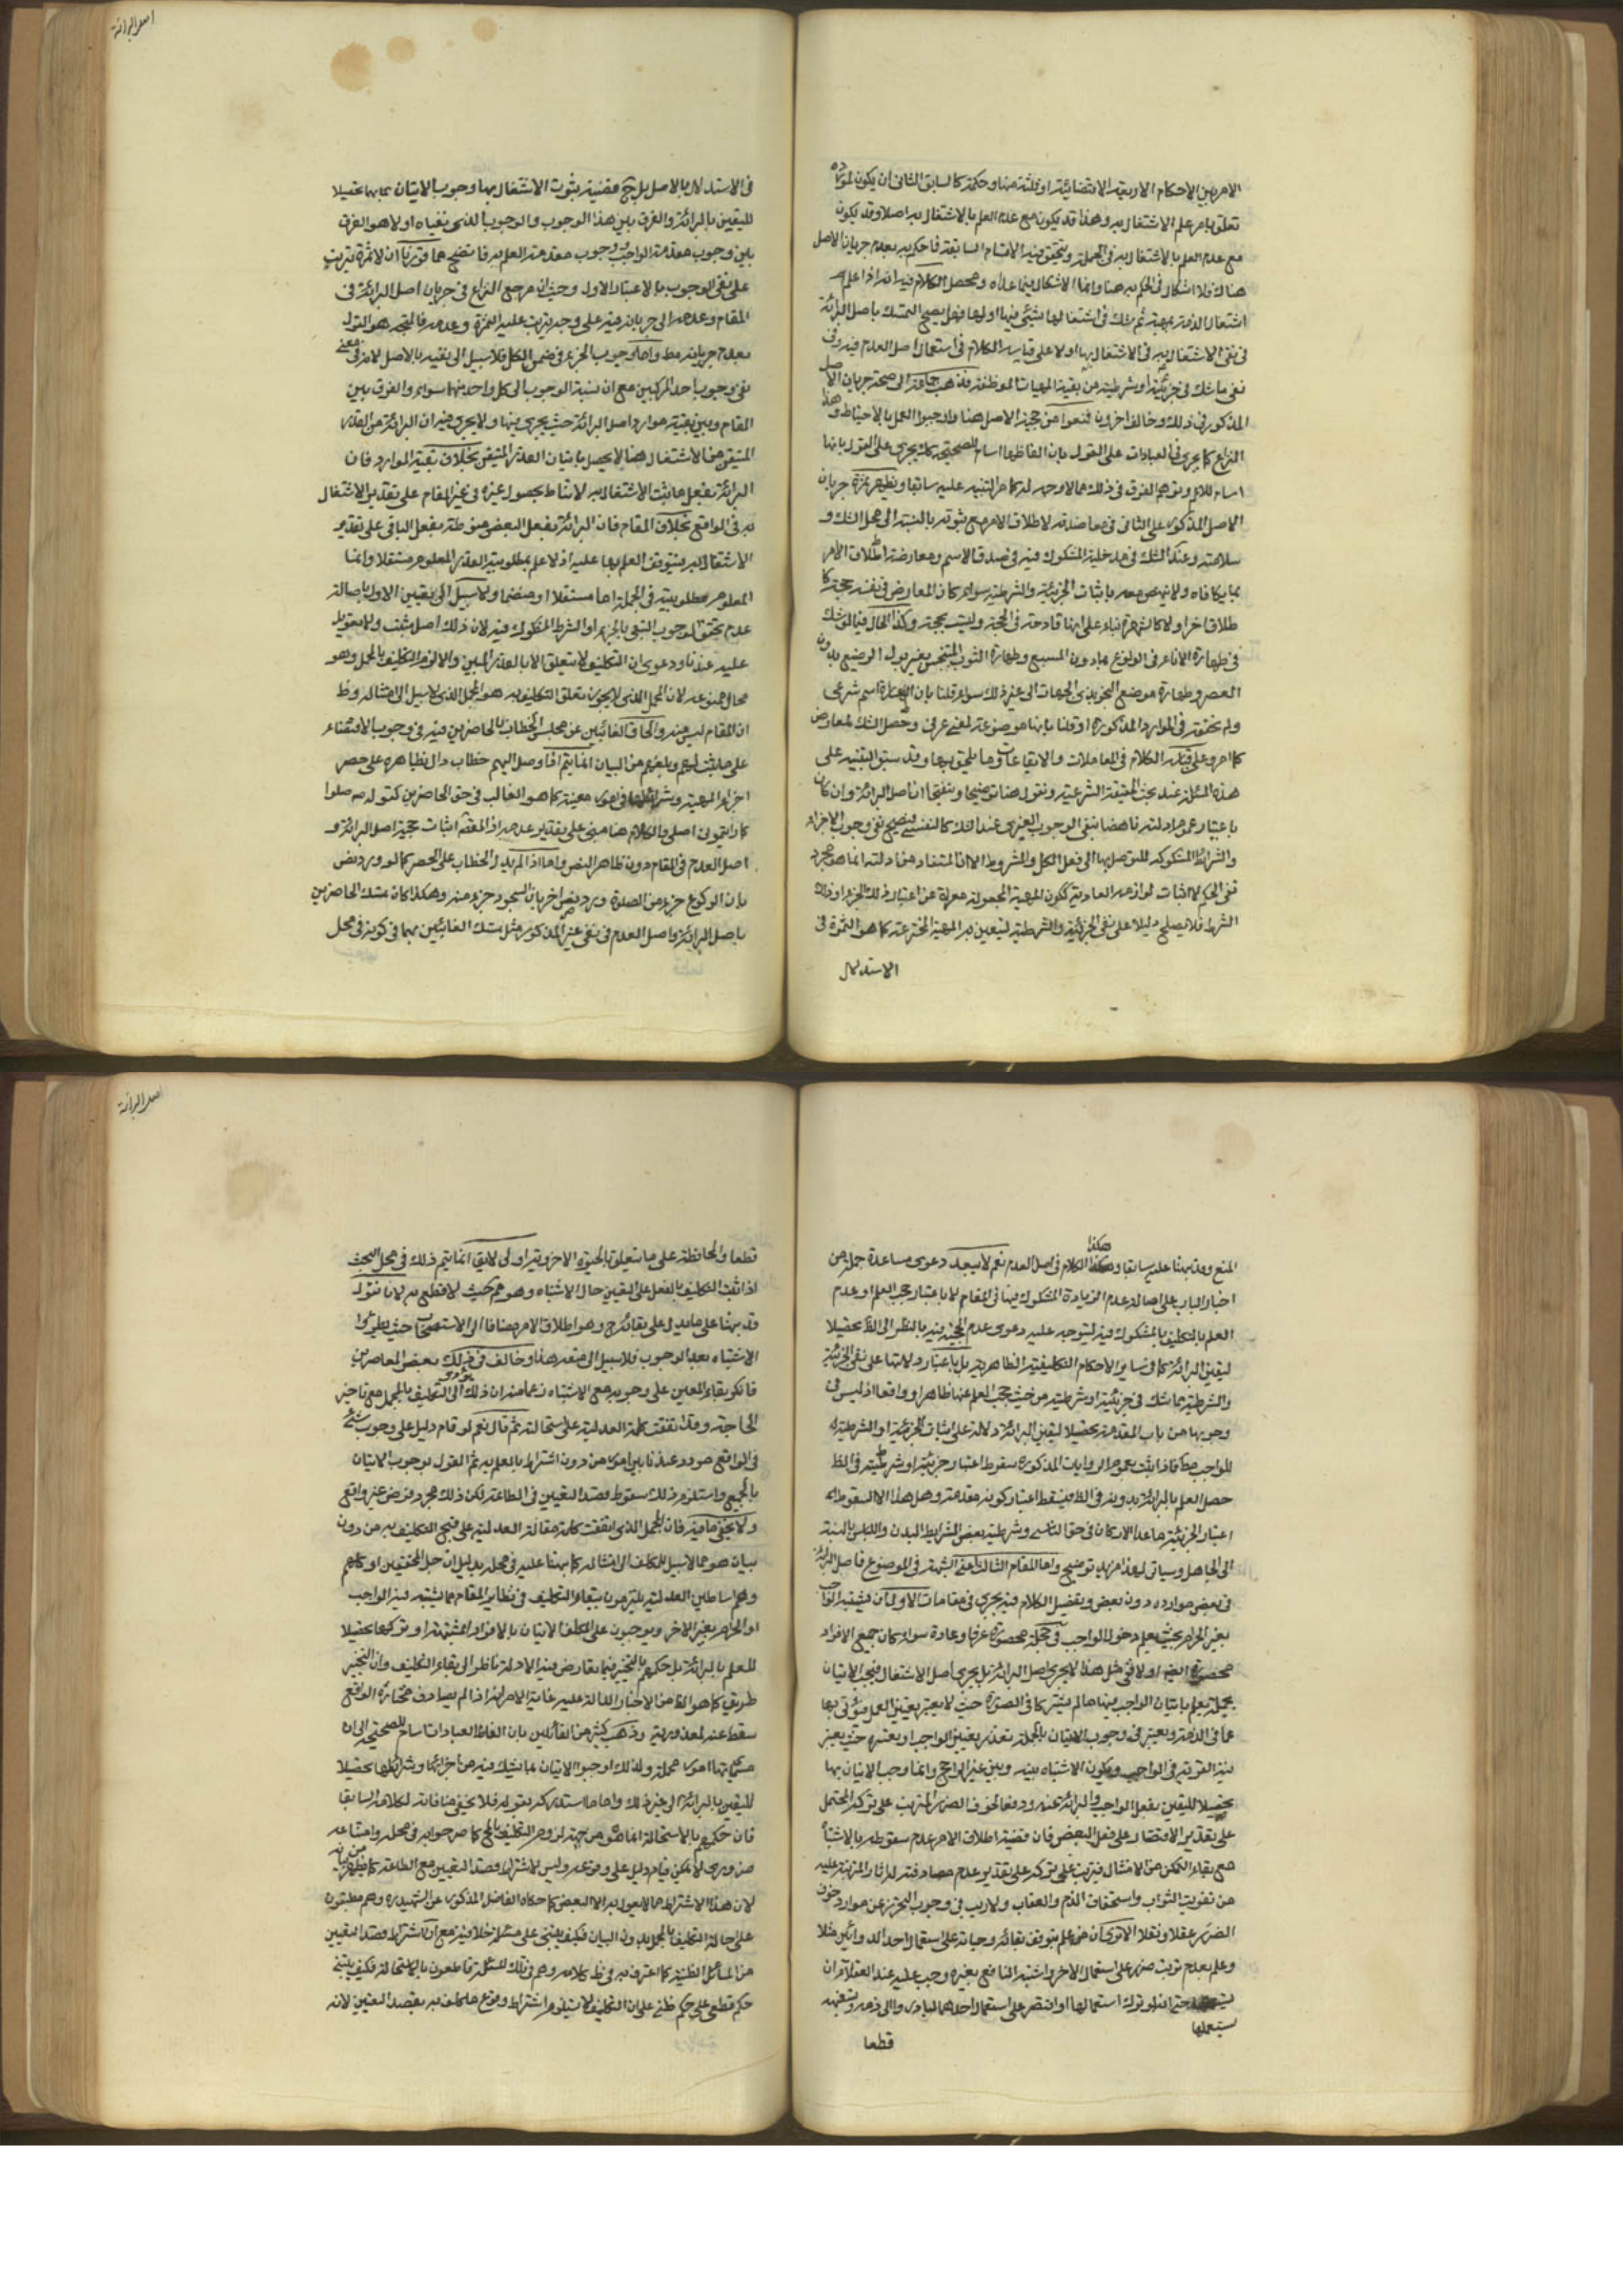 الامر بين الاحكام الاربعة الاقتضائية او ثلثة منها وحكمه كالسابق الثانى ان يكون لمورده
تعلق بامر علم الاشتغال به وهذا قد يكون مع عدم العلم بالاشتغال به اصلا وقد يكون
مع عدم العلم بالاشتغال به فى الجملة ويتحقق فيه الاقسام السابقة فما حكم به بعدم جريان الاصل
هناك فلا اشكال فى الحكم به هنا وانما الاشكال فيما عداه ومحصل الكلام فيه انه اذا علم
اشتغال الذمة بمهية ثم شك فى اشتغالها بشئ فيها اولها فهل يصح التمسك باصل البرائة
فى نفى الاشتغال به فى الاشتغال بها اولا على قياس الكلام فى استعمال اصل العدم فيه وفى
نفى ما شك فى جزئيته او شرطيته من بقية المهيات الموظفة فذهب جماعة الى صحة جريان الاصل
المذكور فى ذلك وخالف اخرون فمنعوا من حجية الاصل هنا واوجبوا العمل بالاحتياط وهذا
النزاع كما يجرى فى العبادات على القول بان الفاظها اسام للصحيحة كك يجرى على القول بانها
اسام للاعم وتوهم الفرق فى ذلك مما لا وجه له كما مر التنبيه عليه سابقا ويظهر ثمرة جريان
الاصل المذكور على الثانى فى معاضدته لاطلاق الامر مع ثبوته بالنسبة الى محل الشك و
سلامته وعند الشك فى مدخلية المشكوك فيه فى صدق الاسم ومعارضة اطلاق الامر
بما يكافاه ولا ينهض معه باثبات الجزئية والشرطية سواء كان المعارض فى نفسه حجة كا
طلاق اخر اولا كالشهرة بناء على انها قادحة فى الحجة وليست بحجة وكذا الحال فيما لو شك
فى طهارة الاناء فى الولوغ بما دون المسبع وطهارة الثوب المتنجس بغير بول الرضيع بدون
العصر وطهارة موضع النجو بذى الجهات الى غير ذلك سواء قلنا بان الطهارة اسم شرعى
ولم يتحقق فى الموارد المذكورة او قلنا بانها موضوعة لمعنى عرفى وحصل الشك لمعارض
كما مر وعلى قياسه الكلام فى المعاملات والايقاعات وما يلحق بهما وقد سبق التنبيه على
هذه المسئلة عند بحث الحقيقة الشرعية ونقول هنا توضيحا وتنقيحا ان اصل البرائة وان كان
باعتبار عموم ادلته ناهضا بنفى الوجوب الغيرى عند الشك كالنفسى فيصح نفى وجوب الاجزاء
والشرائط المشكوكة للتوصل بها الى فعل الكل والمشروط الا ان المستفاد من ادلته انما هو مجرد
نفى الحكم لا اثبات لوازمه العادية ككون المهية المجعولة معراة عن اعتبار ذلك الجزء او ذلك
الشرط فلا يصلح دليلا على نفى الجزئية والشرطية ليتعين به المهية المخترعة كما هو الثمرة فى
الاستدلال
اصل البرائة
فى الاستدلال بالاصل بل قضية ثبوت الاشتغال بها وجوب الاتيان بما بها تحصيلا
لليقين بالبرائة والفرق بين هذا الوجوب والوجوب الذى نفيناه اولا هو الفرق
بين وجوب مقدمة الواجب ووجوب مقدمة العلم به فاتضح مما قررنا ان لا ثمرة تترتب
على نفى الوجوب بالاعتبار الاول وحيث ان مرجع النزاع فى جريان اصل البرائة فى
المقام وعدمه الى جريانه فيه على وجه يترتب عليه الثمرة وعدمه فالمتجه هو القول
بعدم جريانه مط واما وجوب الجزء فى ضمن الكل فلا سبيل الى نفيه بالاصل لانه فى معنى
نفى وجوب احد المركبين مع ان نسبة الوجوب الى كل واحد منهما سواء والفرق بين
المقام وبين بقية موارد اصل البرائة حيث يجرى فيها ولا يجرى فيه ان البرائة من القدر
المتيقن من الاشتغال هنا لا يحصل باتيان القدر المتيقن بخلاف بقية الموارد فان
البرائة بفعل ما يثبت الاشتغال به لا يناط بحصول غيره فى غير المقام على تقدير الاشتغال
به فى الواقع بخلاف المقام فان البرائة بفعل البعض منوطة بفعل الباقى على تقدير
الاشتغال به فيتوقف العلم بها عليه اذ لا علم بمطلوبية القدر المعلوم مستقلا وانما
المعلوم مطلوبيته فى الجملة اما مستقلا او منضما ولا سبيل الى تعيين الاول باصالة
عدم تحقق الوجوب التبعى بالجزء او الشرط المشكوك فيه لان ذلك اصل مثبت ولا تعويل
عليه عندنا ودعوى ان التكليف لا يتعلق الا بالقدر المبين والا لزم التكليف بالمجمل وهو
محال ممنوعة لان المجمل الذى لا يجوز تعلق التكليف به هو المجمل الذى لا سبيل الى امتثاله وظ
ان المقام ليس منه والحاق الغائبين عن مجلس الخطاب بالحاضرين فيه فى وجوب الاقتصار
على ما يثبت لهم وبلغهم من البيان انما يتم اذا وصل اليهم خطاب دال بظاهره على حصر
اجزاء المهية وشرائطها فى امور معينة كما هو الغالب فى حق الحاضرين كقوله صلوا
كما رايتمونى اصلى والكلام هنا مبنى على تقدير عدمه اذ المقصود اثبات حجية اصل البرائة و
اصل العدم فى المقام دون ظاهر النص واما اذا لم يدل الخطاب على الحصر كما لو ورد نص
بان الركوع جزء من الصلوة وورد نص اخر بان السجود جزء منه وهكذا كان تمسك الحاضرين
باصل البرائة واصل العدم فى نفى غير المذكور مثل تمسك الغائبين بهما فى كونه فى محل
المنع وقد نبهنا عليه سابقا وهكذا الكلام فى اصل العدم نعم لا يبعد دعوى مساعدة جملة من
اخبار الباب على اصالة عدم الزيادة المشكوك فيها فى المقام لا باعتبار حجب العلم او عدم
العلم بالتكليف بالمشكوك فيه ليتوجه عليه دعوى عدم الحجية فيه بالنظر الى الظ تحصيلا
ليقين البرائة كما فى سائر الاحكام التكليفية الظاهرية بل باعتبار دلالتها على نفى الجزئية
والشرطية مما شك فى جزئيته او شرطيته من حيث حجب العلم عنها ظاهرا وواقعا اذ ليس فى
وجوبها من باب المقدمة تحصيلا ليقين البرائة دلالة على اثبات الجزئية او الشرطية
للواجب مط فاذا ثبت بعموم الروايات المذكورة سقوط اعتبار جزئيته او شرطيته فى الظ
حصل العلم بالبرائة بدونه فى الظ فيسقط اعتبار كونه مقدمة وهل هذا الا السقوط
اعتبار الجزئية ما عدا الاركان فى حق الناسى وشرطية بعض الشرايط البدن واللباس بالنسبة
الى الجاهل وسياتى لهذا مزيد توضيح واما المقام الثالث اعنى الشبهة فى الموضوع فاصل البرائة
فى بعض موارده دون بعض وتفصيل الكلام فيه يجرى فى مقامات الاول ان يشتبه الواجب
بغير الحرام بحيث يعلم دخول الواجب فى جملة محصورة عرفا وعادة سواء كان جميع الافراد
محصورة ايضا اولا ففى مثل هذا لا يجرى اصل البرائة بل يجرى اصل الاشتغال فيجب الاتيان
بجملة يعلم باتيان الواجب فيها ما لم يتعسر كما فى الصورة حيث لا يعتبر تعيين العمل فيؤتى بها
عما فى الذمة ويعتبر فى وجوب الاتيان بالجملة تعذر تعيين الواجب او تعسره حيث يعتبر
نية القربة فى الواجب ويكون الاشتباه بينه وبين غير الراجح وانما وجب الاتيان بها
تحصيلا لليقين بفعل الواجب والبرائة عنه ودفعا لخوف الضرر المترتب على تركه المحتمل
على تقدير الاقتصار على فعل البعض فان قضية اطلاق الامر عدم سقوطه بالاشتباه
مع بقاء التمكن من الامتثال فيترتب على تركه على تقدير عدم مصادفته الاثار المترتبة عليه
من تفويت الثواب واستحقاق الذم والعقاب ولا ريب فى وجوب التحرز عن موارد خوف
الضرر عقلا ونقلا الا ترى ان من علم بتوقف بقائه وحياته على استعمال احد الدوائين مثلا
وعلم بعدم ترتب ضرر على استعمال الاخر واشتبه النافع بغيره وجب عليه عند العقلاء ان
يستعملها حتى انه لو ترك استعمالها او اقتصر على استعمال احدهما لبادروا الى ذمه وتسفيهه
قطعا
اصل البرائة
قطعا والمحافظة على ما يتعلق بالحيوة الاخروية اولى لا يق انما يتم ذلك فى محل البحث
اذا ثبت التكليف بالفعل على التعيين حال الاشتباه وهو مم حيث لا قطع به لانا نقول
قد نبهنا على ما يدل على بقائه وهو اطلاق الامر مضافا الى الاستصحاب حيث يطرئ
الاشتباه بعد الوجوب فلا سبيل الى منعه هذا وخالف فى ذلك بعض المعاصرين
فانكر بقاء المعين على وجوبه مع الاشتباه زعما منه ان ذلك يؤدى الى التكليف بالمجمل مع تاخير
الحاجة وقد اتفقت كلمة العدلية على استحالته ثم قال نعم لو قام دليل على وجوب شئ
فى الواقع مردد عندنا بين امور من دون اشتراط بالعلم به ثم القول بوجوب الاتيان
بالجميع واستلزم ذلك سقوط قصد التعيين فى الطاعة لكن ذلك مجرد فرض غير واقع
ولا يخفى ما فيه فان المجمل الذى اتفقت كلمة مقالة العدلية على قبح التكليف به من دون
بيان هو مما لا سبيل للمكلف الى امتثاله كما نبهنا عليه فى محله بدليل ان جل المحققين او كلهم
وهم اساطين العدلية يلتزمون ببقاء التكليف فى نظاير المقام مما يشتبه فيه الواجب
او الحرام بغير الاخر ويوجبون على المكلف الاتيان بالافراد المشتبهة او تركها تحصيلا
للعلم بالبرائة بل حكمهم بالتخيير فيما تعارض فيه الادلة ناظر الى بقاء التكليف وان التخيير
طريق كما هو الظ من الاخبار الدالة عليه غاية الامر انه اذا لم يصادف مختاره الواقع
سقط عنه لمعذوريته وذهب كثير من القائلين بان الفاظ العبادات اسام للصحيحة الى ان
مسمياتها امور مجملة ولذلك اوجبوا الاتيان بما يشك فيه من اجزائها وشرائطها تحصيلا
لليقين بالبرائة الى غير ذلك واما ما استدركه بقوله فلا يخفى منافاته لكلامه السابق
فان حكمهم بالاستحالة انما هو من جهة لزوم التكليف بالمجمل كما صرحوا به فى محله وامتناعه
ضرورى لا يمكن قيام دليل على وقوعه وليس لاشتراط قصد التعيين مع الطاعة كما يظهر من بيانه
لان هذا الاشتراط مما لا يقول به الا البعض كما حكاه الفاضل المذكور عن الشهيد ره وهم مطبقون
على احالة التكليف بالمجمل بدون البيان فكيف يبتنى على مسئلة خلافية مع ان اشتراط قصد التعيين
من المسائل الظنية كما اعترف به فى ظ كلامه وهم فى تلك المسئلة قاطعون بالاستحالة فكيف يبتنى
حكم قطعى على حكم ظنى على ان التكليف لا يستلزم اشتراط وقوع ما كلف به بقصد التعيين لانه